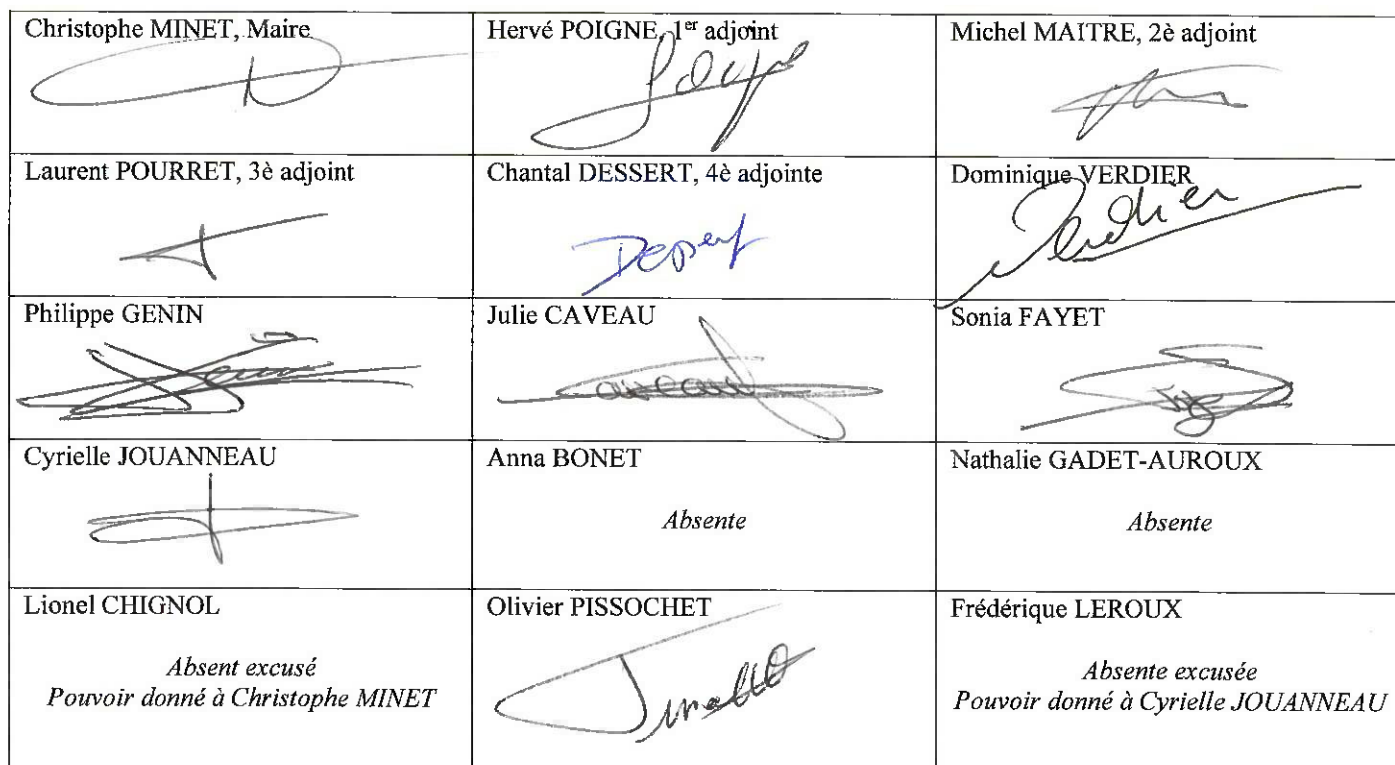 Christophe MINET, Maire
Hervé POIGNE, 1er adjoint
Michel MAITRE, 2è adjoint
Laurent POURRET, 3è adjoint
Chantal DESSERT, 4è adjointe
Dominique VERDIER
Verdier
Philippe GENIN
Julie CAVEAU
Sonia FAYET
Cyrielle JOUANNEAU
Anna BONET
Absente
Nathalie GADET-AUROUX
Absente
Lionel CHIGNOL
Absent excusé
Pouvoir donné à Christophe MINET
Olivier PISSOCHET
Frédérique LEROUX
Absente excusée
Pouvoir donné à Cyrielle JOUANNEAU